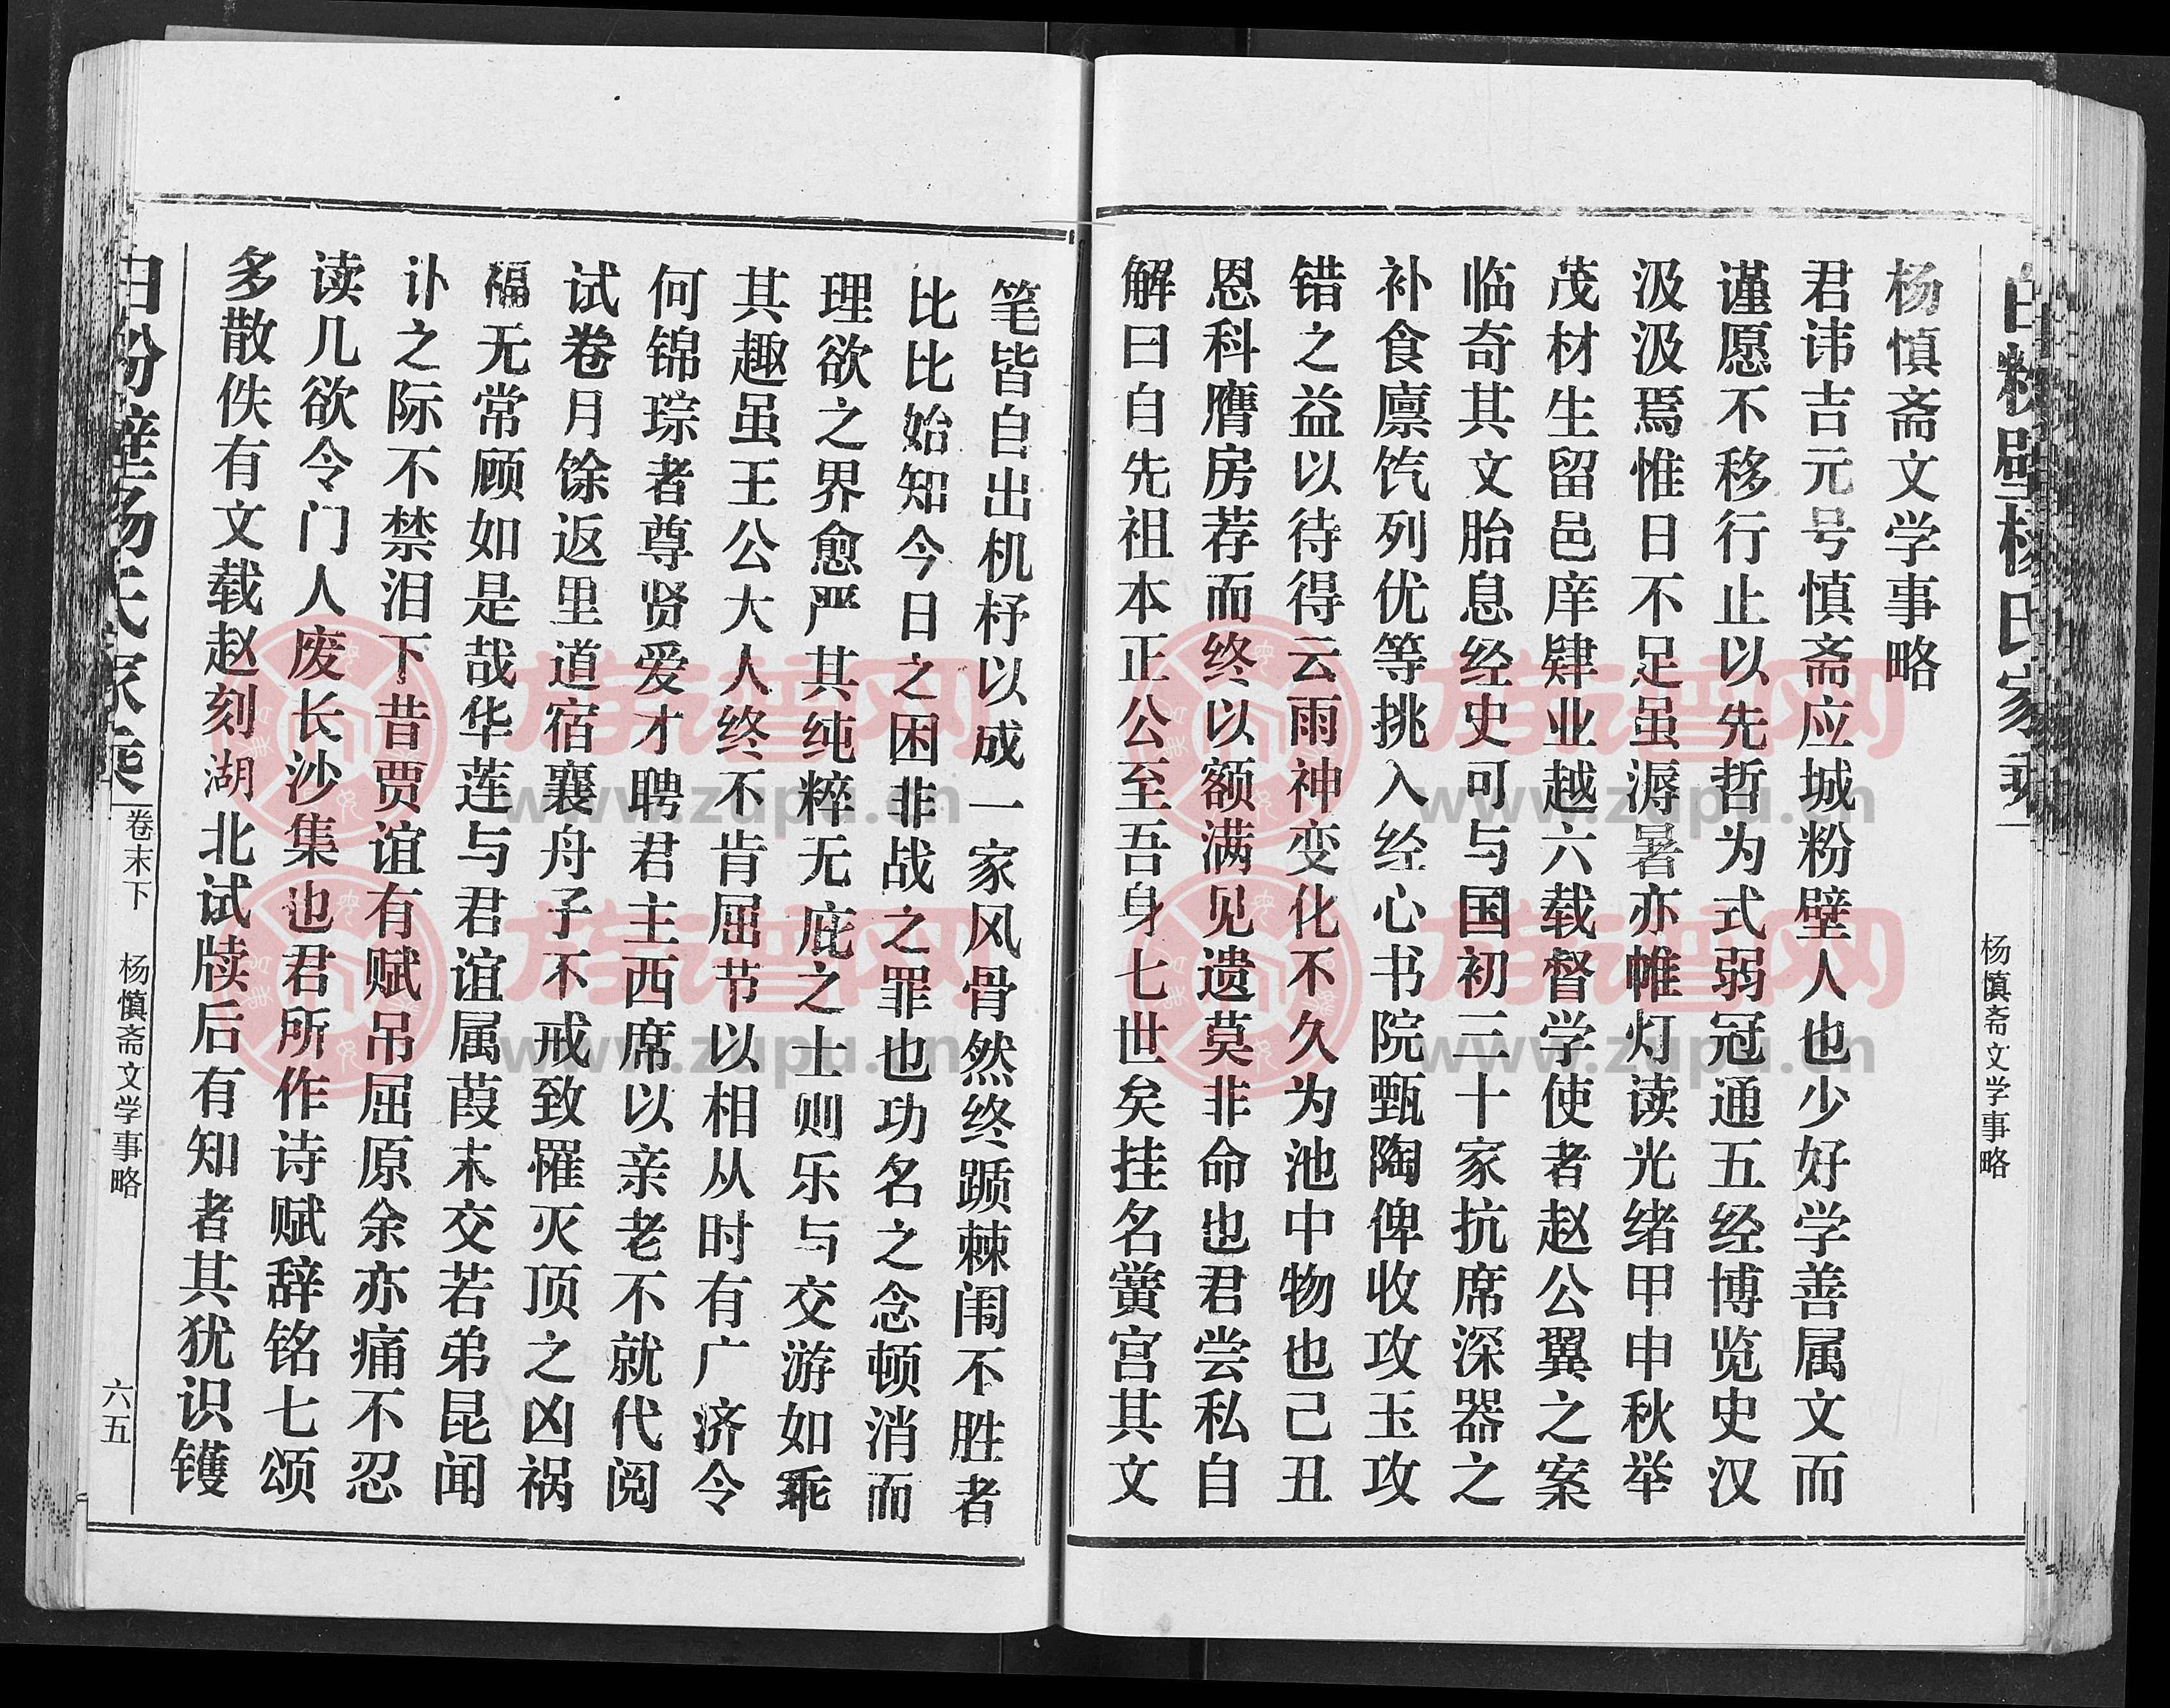 白粉壁杨氏家乘
杨慎斋文学事略
杨慎斋文学事略
君讳吉元号慎斋应城粉壁人也少好学善属文而
谨愿不移行止以先哲为式弱冠通五经博览史汉
汲汲焉惟日不足虽溽暑亦帷灯读光绪甲申秋举
茂材生留邑庠肄业越六载督学使者赵公翼之案
临奇其文胎息经史可与国初三十家抗席深器之
补食廪饩列优等挑入经心书院甄陶俾收攻玉攻
错之益以待得云雨神变化不久为池中物也己丑
恩科膺房荐而终以额满见遗莫非命也君尝私自
解曰自先祖本正公至吾身七世矣挂名黉宫其文
笔皆自出机杼以成一家风骨然终踬棘闱不胜者
比比始知今日之困非战之罪也功名之念顿消而
理欲之界愈严其纯粹无庇之士则乐与交游如乖
其趣虽王公大人终不肯屈节以相从时有广济令
何锦琮者尊贤爱才聘君主西席以亲老不就代阅
试卷月馀返里道宿襄舟子不戒致罹灭顶之凶祸
福无常顾如是哉华莲与君谊属葭末交若弟昆闻
讣之际不禁泪下昔贾谊有赋吊屈原余亦痛不忍
读几欲令门人废长沙集也君所作诗赋辞铭七颂
多散佚有文载赵刻湖北试牍后有知者其犹识镬
白粉壁杨氏家乘
卷末下
杨慎斋文学事略
六五
族谱网
www.zupu.cn
族谱网
www.zupu.cn
族谱网
www.zupu.cn
族谱网
www.zupu.cn